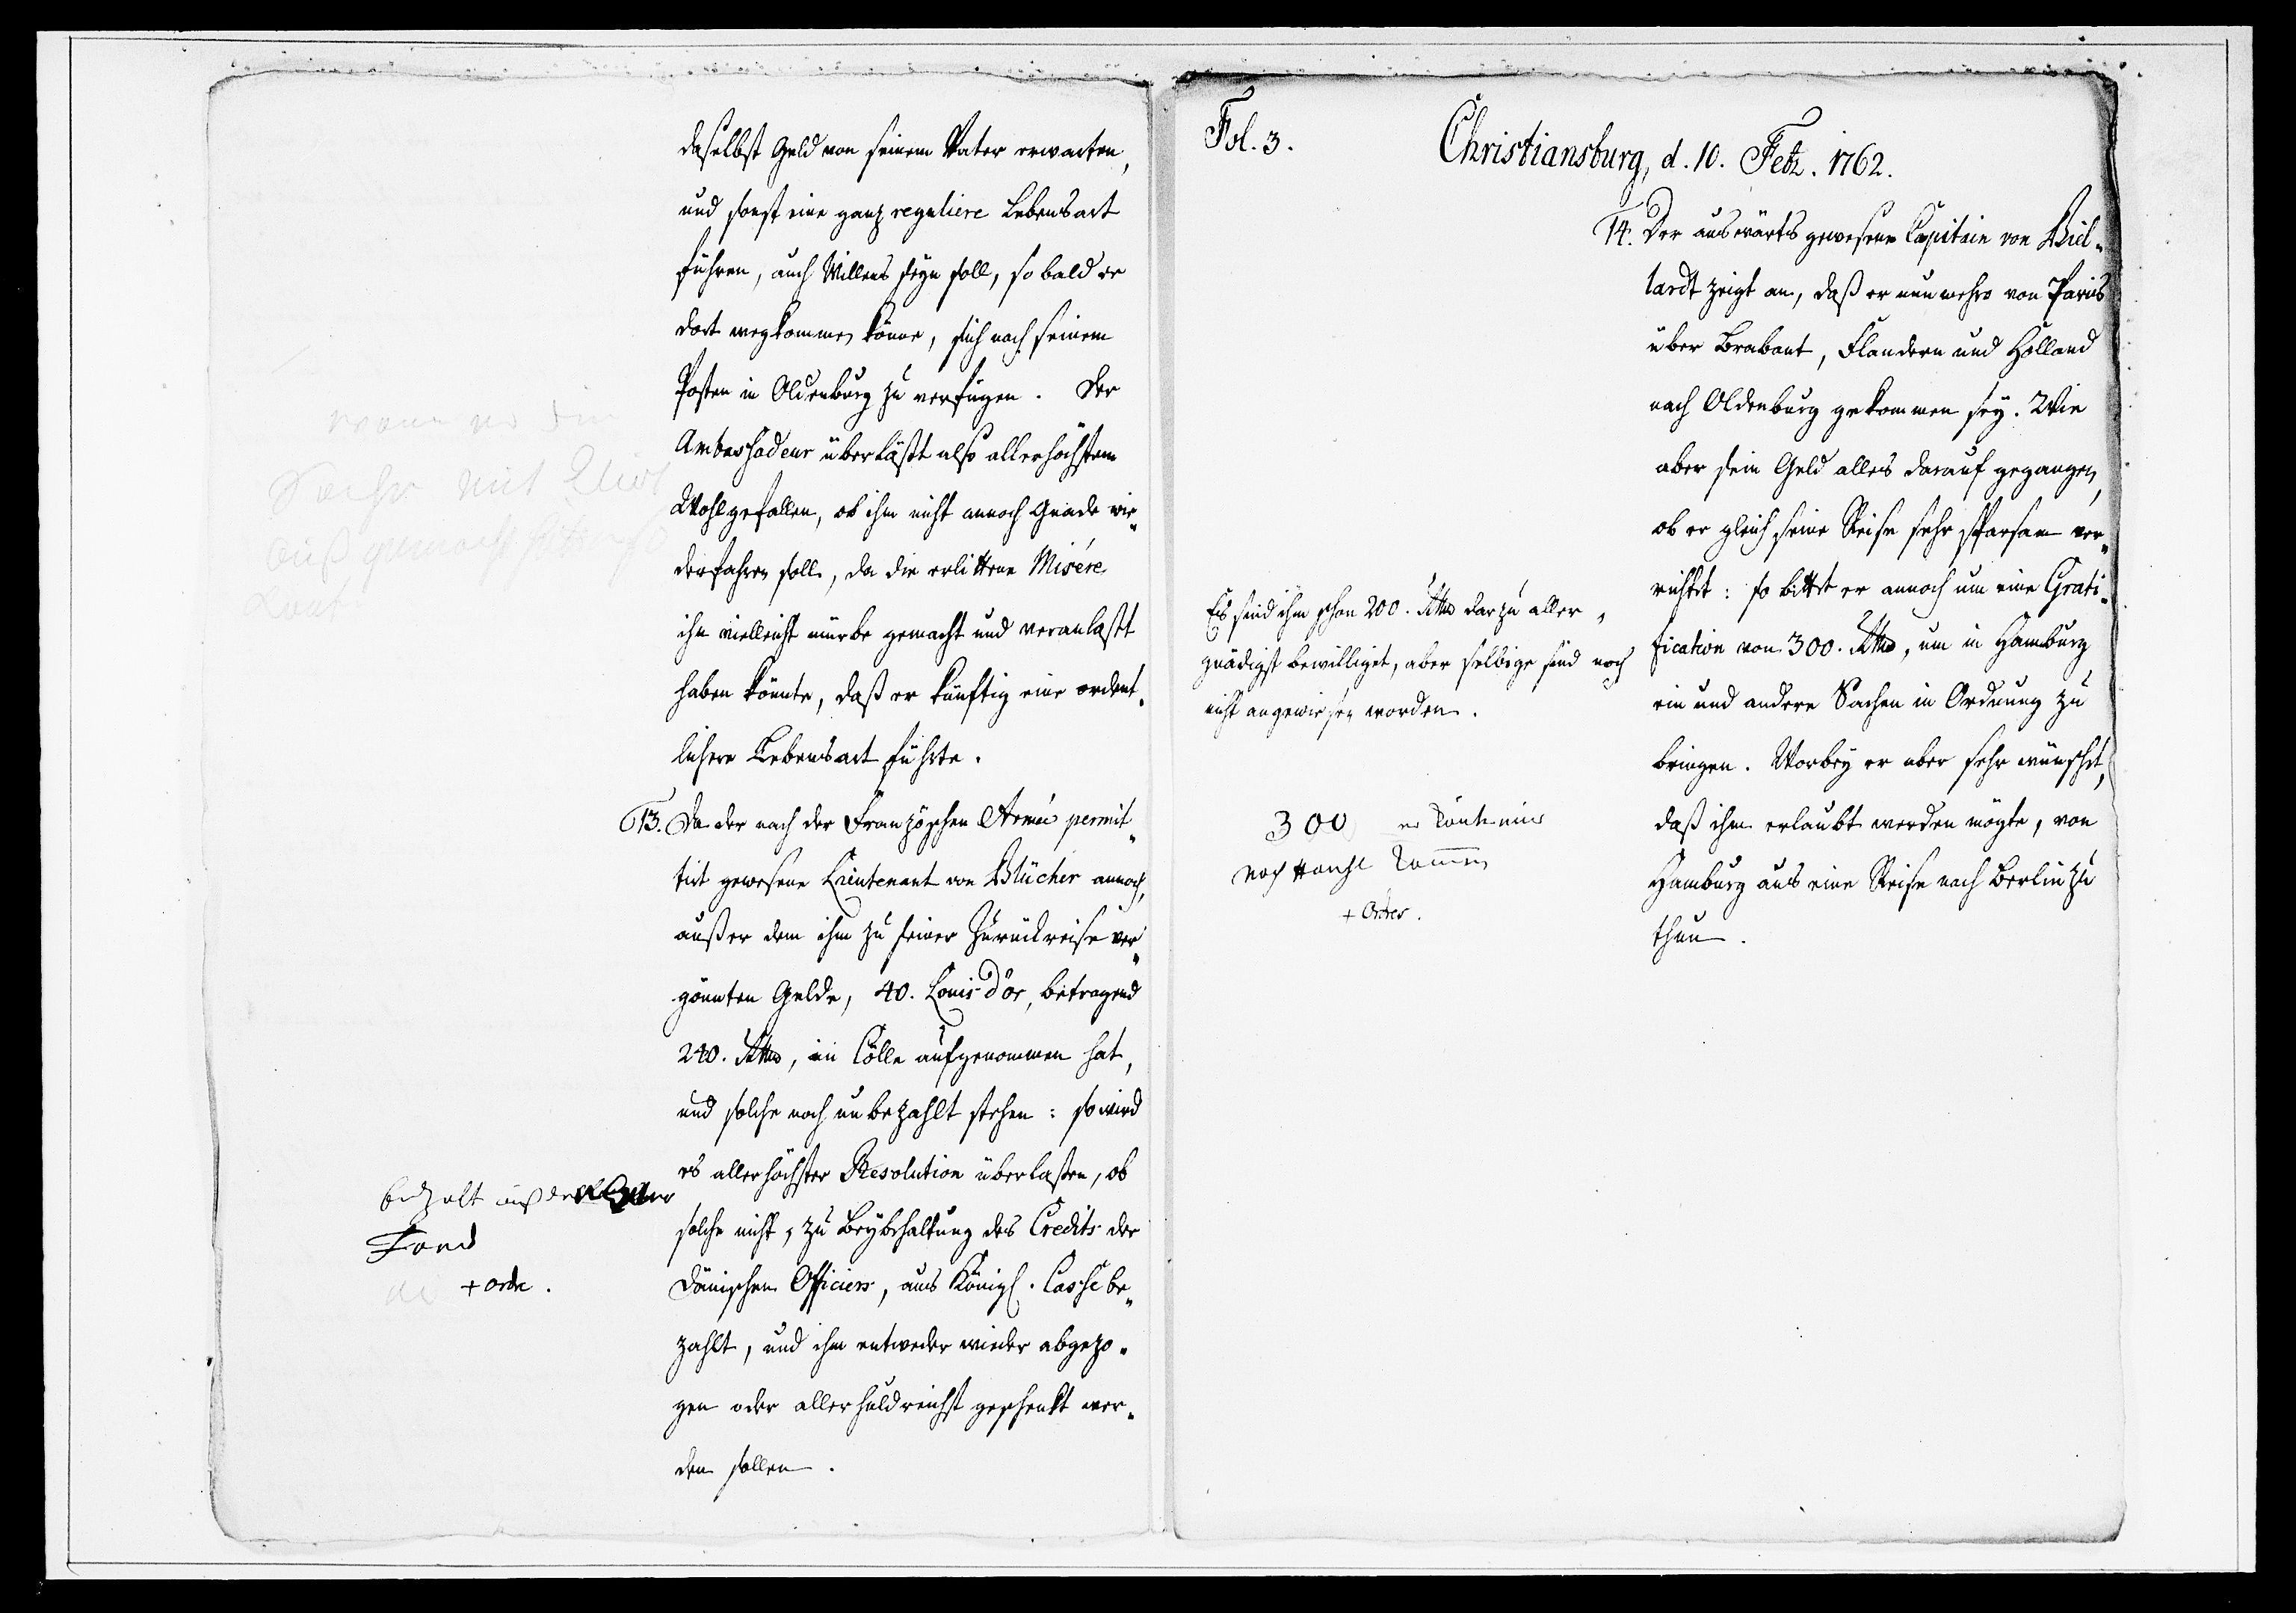 daselbst Geld von seinem Vater erwarten,
und sonst eine ganz reguliere Lebensart
führen, auch Willens seyn soll, so bald er
dort wegkommen könne, sich nach seinem
Posten in Oldenburg zu verfügen. Der
Ambassadeur überläßt also allerhöchstem
Wohlgefallen, ob ihm nicht annoch Gnade wie„
derfahren soll, da die erlittene Misére
ihn vielleicht mürbe gemacht und veranlaßt
haben könnte, daß er künftig eine ordent„
lichere Lebensart führte.
13. Da der nach der Französchen Armée permit„
tirt gewesene Lieutenant von Blücher annoch,
außer dem ihm zu seiner Zurückreise ver„
gönnten Gelde, 40. Louis d'or, betragend
240. Rthlr, in Cölln aufgenommen hat,
und solche noch unbezahlt stehen: so wird
es allerhöchster Resolution überlaßen, ob
solche nicht, zu Beybehaltung des Credits der
Dänischen Officiers, aus Königl. Casse be„
zahlt, und ihm entweder wieder abgezo„
gen oder allerhuldreichst geschenkt wer„
den sollen.
wann er die
Sache mit
auß gemacht
bezalt auß der
Fond
+ ordr.
Fol. 3.
Christiansburg, d. 10. Febr. 1762.
14. Der auswärts gewesene Capitain von Biel„
lardt zeigt an, daß er nunmehro von Paris
über Brabant, Flandern und Holland
nach Oldenburg gekommen sey. Wie
aber sein Geld alles darauf gegangen,
ob er gleich seine Reise sehr sparsam ver„
richtet: so bittet er annoch um eine Grati„
fication von 300. Rthlr, um in Hamburg
ein und andere Sachen in Ordnung zu
bringen. Worbey er aber sehr wünschet,
daß ihm erlaubt werden mögte, von
Hamburg aus eine Reise nach Berlin zu
thun.
Es sind ihm schon 200. Rthlr darzu aller„
gnädigst bewilliget, aber selbige sind noch
nicht angewiesen worden.
300 er könte nur
nach Hausse kommen
+ Ordres.